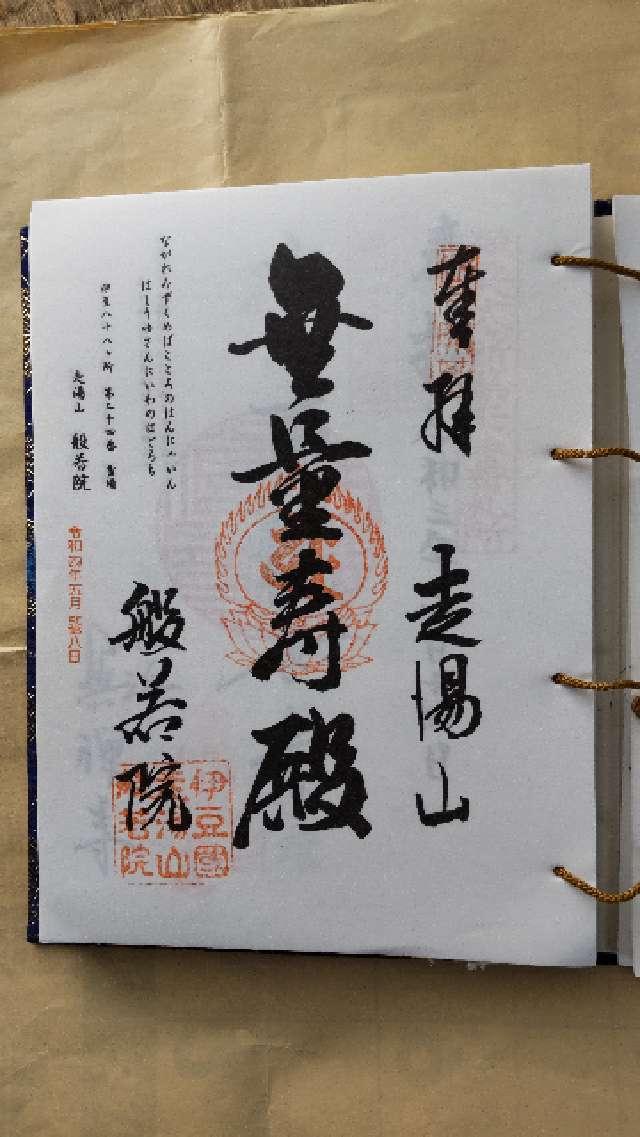 奉拝
走湯山
無量寿殿
ながれみずくめばこころのはんにゃいん
はしりゆさんにいわのはどろち
伊豆八十八ヶ所 第二十四番 霊場
走湯山 般若院
令和四年五月弐拾八日
般若院
伊豆國
走湯山
般若院